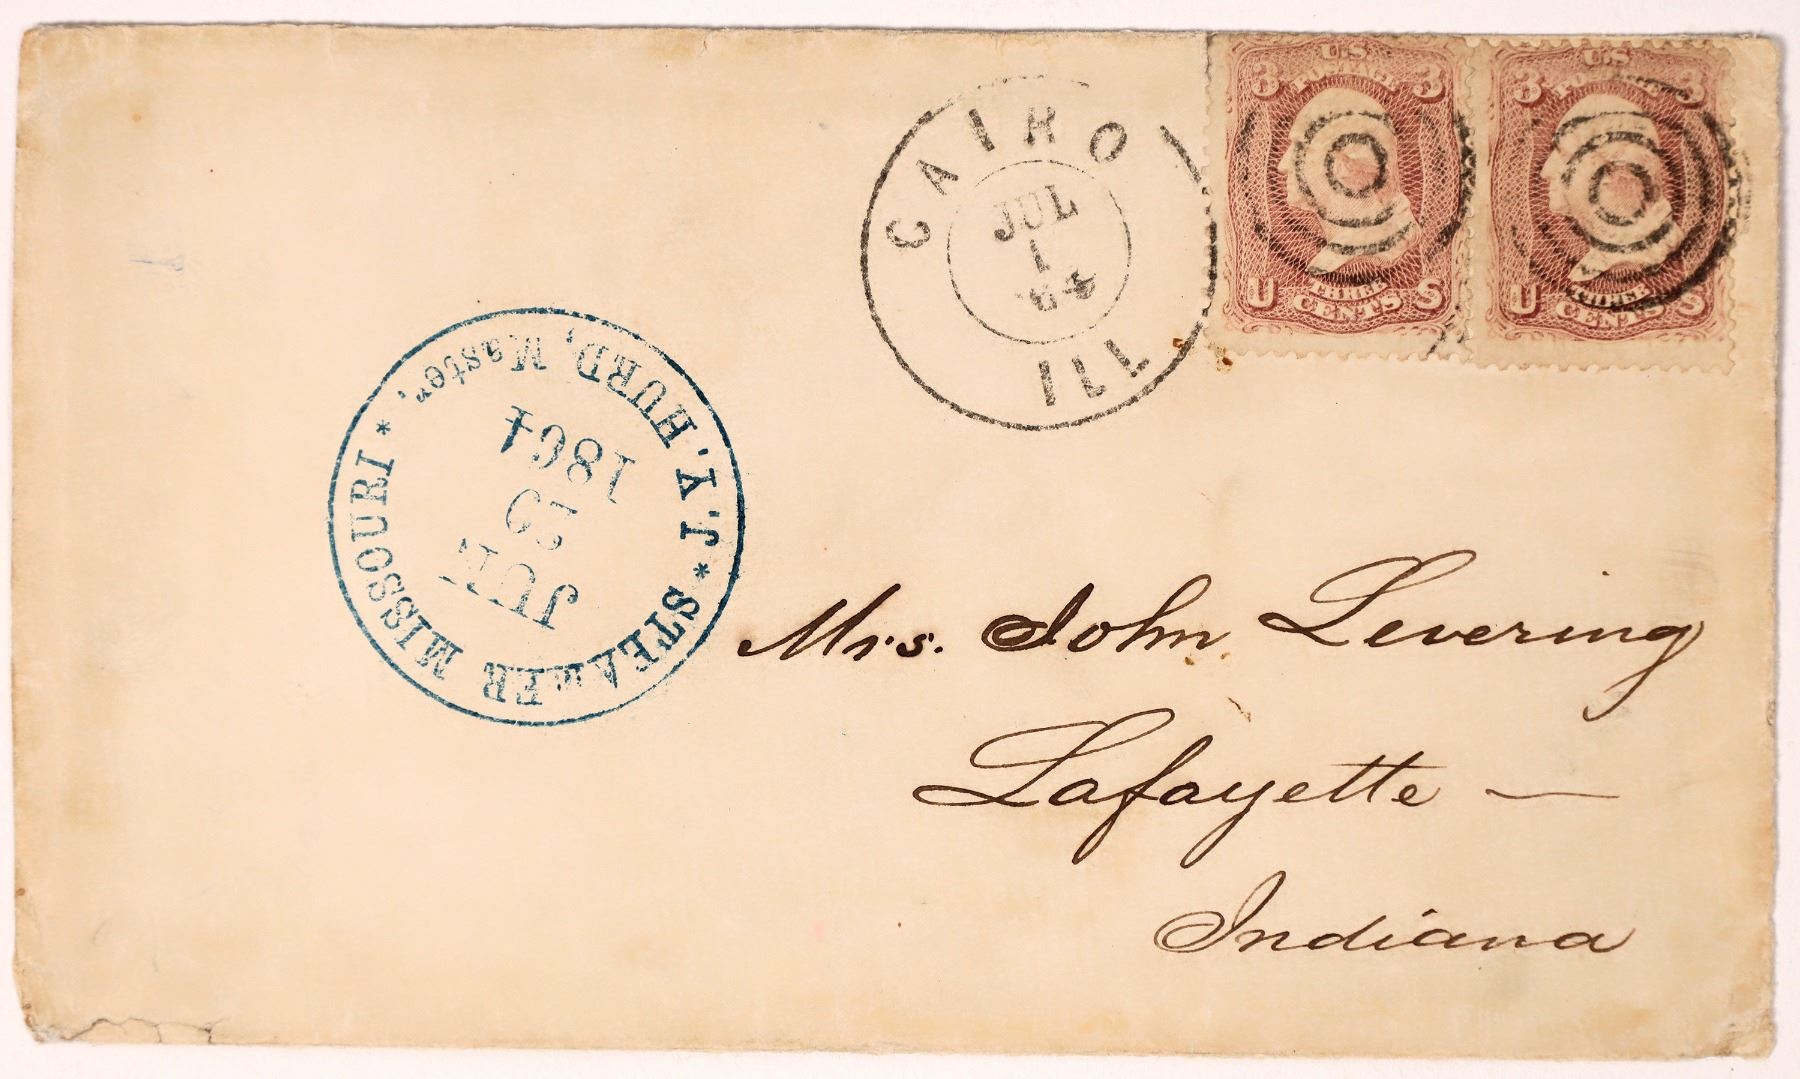 CAIRO
JUL
1
'64
ILL
U.S.
POSTAGE
3 3
THREE
CENTS
U S
U.S.
POSTAGE
3 3
THREE
CENTS
U S
* STEAMER MISSOURI *
J.Y. HURD, Master,
JUN
1864
Mrs. John Levering
Lafayette —
Indiana